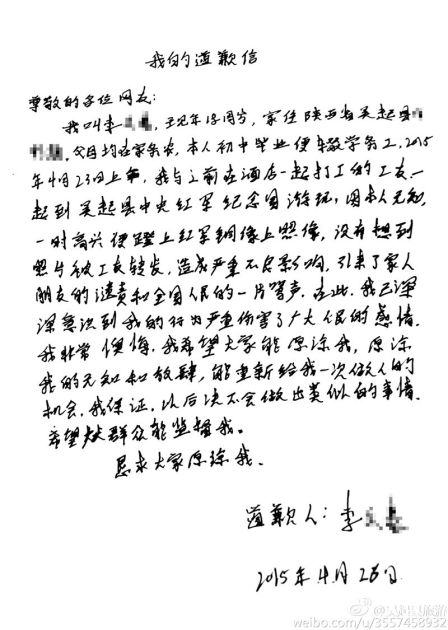 我的道歉信
尊敬的各位网友：
我叫李 ，现年18周岁，家住陕西省吴起县
，父母均在家务农，本人初中毕业便辍学务工，2015
年4月23日上午，我与之前在酒店一起打工的工友一
起到吴起县中央红军纪念园游玩，因本人无知，
一时高兴便蹬上红军铜像上照像，没有想到
照片被工友转发，造成严重不良影响，引来了家人
朋友的谴责和全国人民的一片骂声，在此，我已深
深意识到我的行为严重伤害了广大人民的感情
我非常悔，我希望大家能原谅我，原谅
我的无知和放肆，能重新给我一次做人的
机会，我保证，以后决不会做出类似的事情，
希望群众能监督我。
恳求大家原谅我。
道歉人：李
2015年4月26日
weibo.com/u/3557458932